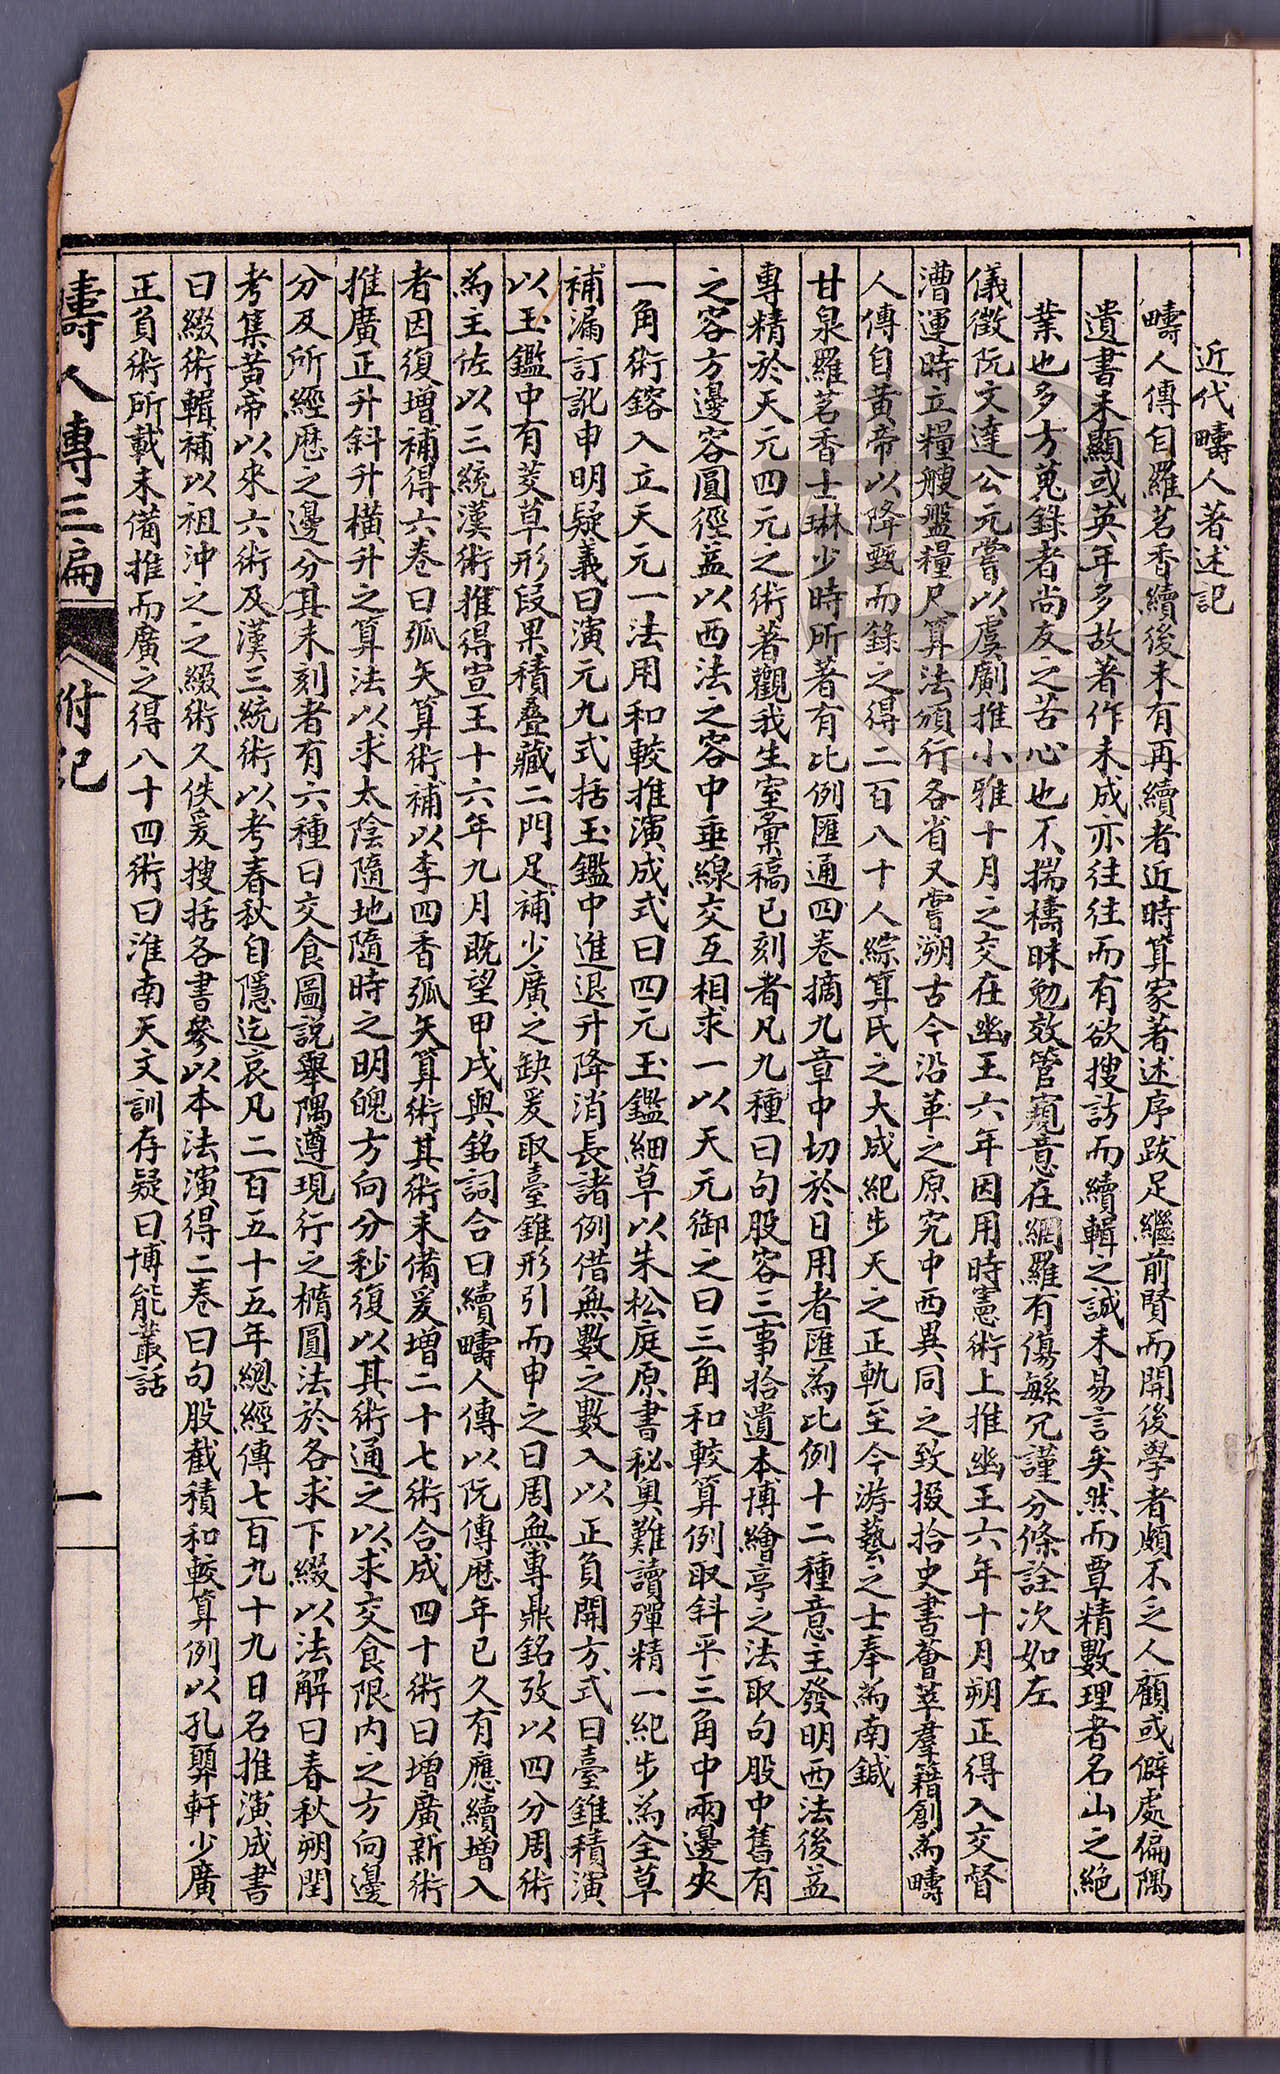 近代疇人著述記
疇人傳自羅茗香續後未有再續者近時算家著述序跋足繼前賢而開後學者頗不乏人顧或僻處偏隅
遺書未顯或英年多故著作未成亦往往而有欲搜訪而續輯之誠未易言矣然而覃精數理者名山之絕
業也多方蒐錄者尚友之苦心也不揣檮昧勉效管窺意在網羅有傷緐冗謹分條詮次如左
儀徵阮文達公元嘗以虞劇推小雅十月之交在幽王六年因用時憲術上推幽王六年十月朔正得入交督
漕運時立糧艘盤糧尺算法頒行各省又嘗溯古今沿革之原究中西異同之致掇拾史書薈萃羣籍創為疇
人傳自黃帝以降甄而錄之得二百八十人綜算氏之大成紀步天之正軌至今游藝之士奉為南鍼
甘泉羅茗香士琳少時所著有比例匯通四卷摘九章中切於日用者匯為比例十二種意主發明西法後益
專精於天元四元之術著觀我生室彙稿已刻者凡九種曰句股容三事拾遺本博繪亭之法取句股中舊有
之容方邊容圓徑益以西法之容中垂線交互相求一以天元御之曰三角和較算例取斜平三角中兩邊夾
一角術鎔入立天元一法用和較推演成式曰四元玉鑑細草以朱松庭原書秘奧難讀殫精一紀步為全草
補漏訂訛申明疑義曰演元九式括玉鑑中進退升降消長諸例借無數之數入以正負開方式曰臺錐積演
以玉鑑中有茭草形段果積疊藏二門足補少廣之缺爰取臺錐形引而申之曰周無專鼎銘攷以四分周術
為主佐以三統漢術推得宣王十六年九月既望甲戌與銘詞合曰續疇人傳以阮傳歷年已久有應續增入
者因復增補得六卷曰弧矢算術補以李四香弧矢算術其術未備爰增二十七術合成四十術曰增廣新術
推廣正升斜升橫升之算法以求太陰隨地隨時之明魄方向分秒復以其術通之以求交食限內之方向邊
分及所經歷之邊分其未刻者有六種曰交食圖說舉隅遵現行之橢圓法於各求下綴以法解曰春秋朔閏
考集黃帝以來六術及漢三統術以考春秋自隱迄哀凡二百五十五年總經傳七百九十九日名推演成書
曰綴術輯補以祖沖之之綴術久佚爰搜括各書參以本法演得二卷曰句股截積和較算例以孔顨軒少廣
正負術所載未備推而廣之得八十四術曰淮南天文訓存疑曰博能叢話
疇人傳三編
附記
一